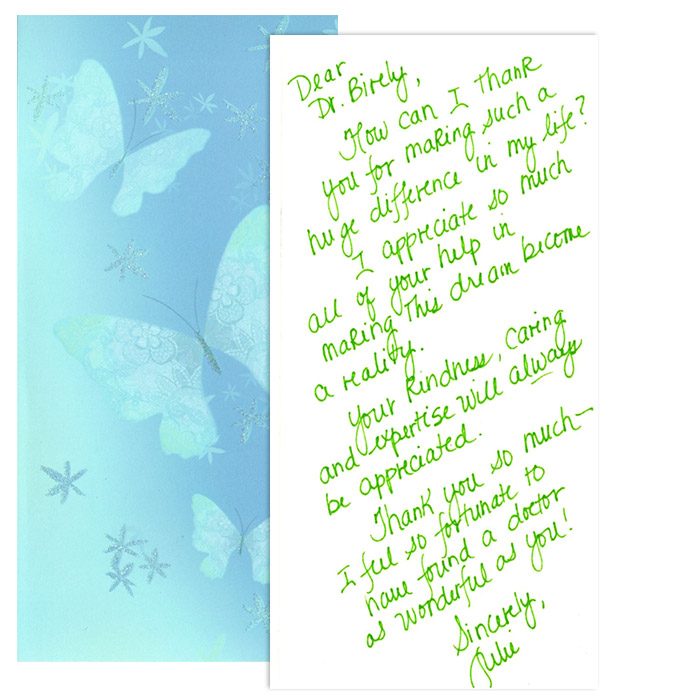 Dear
Dr. Birely,
How can I thank
you for making such a
huge difference in my life?
I appreciate so much
all of your help in
making this dream become
a reality.
Your kindness, caring
and expertise will always
be appreciated.
Thank you so much—
I feel so fortunate to
have found a doctor
as wonderful as you!
Sincerely,
Julie